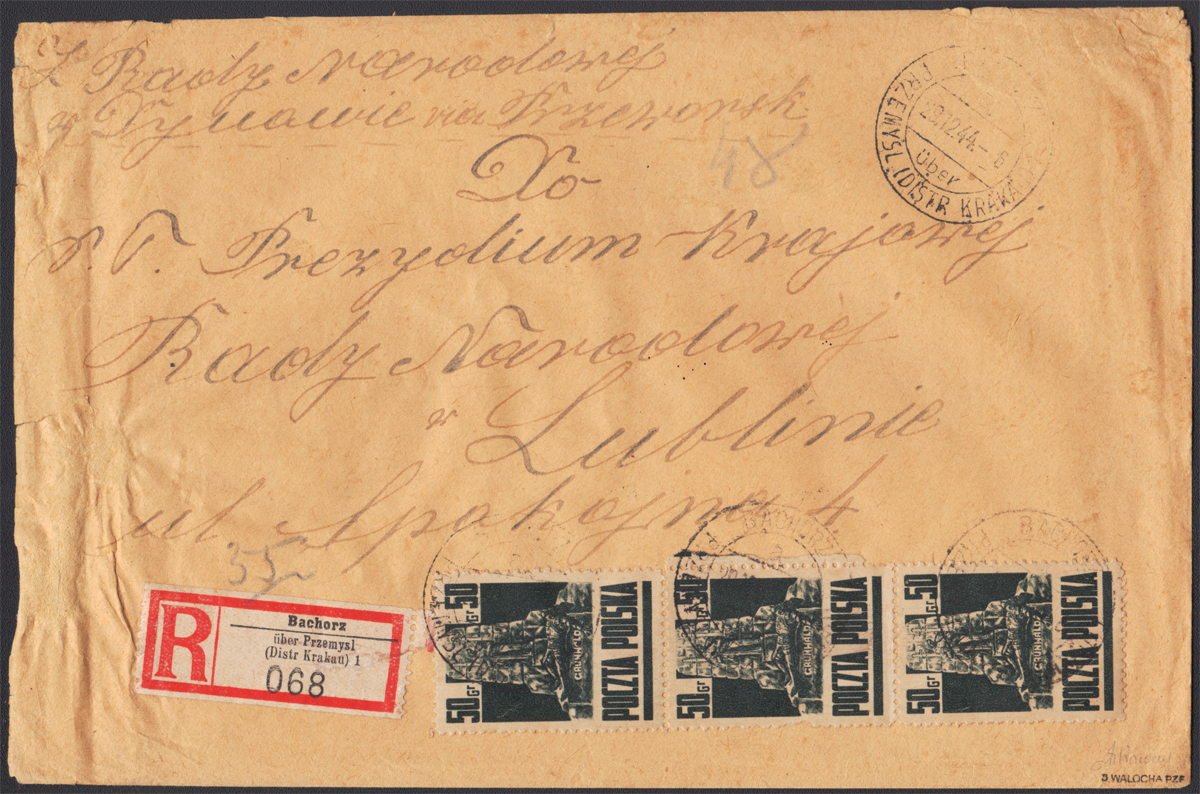 Z Rady Narodowej
w Dynowie via Przeworsk
48
Do
P. T. Prezydium Krajowej
Rady Narodowej
w
Lublinie
ul. Spokojna 4
35
PRZEMYSL (DISTR KRAKAU)
29.12.44.-8
über
R
Bachorz
über Przemysl
(Distr Krakau) 1
068
50 Gr 50 Gr
GRUNWALD
POCZTA POLSKA
50 Gr 50 Gr
GRUNWALD
POCZTA POLSKA
50 Gr 50 Gr
GRUNWALD
POCZTA POLSKA
BACHORZ
BACHORZ
S. WALOCHA PZF